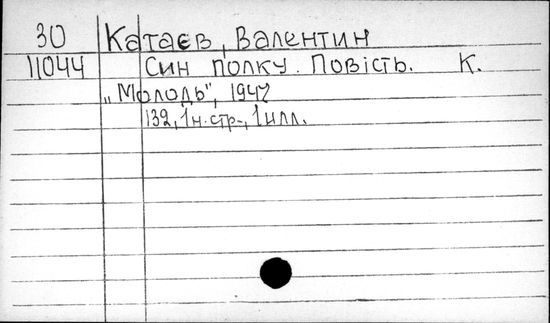 30 Катаєв, Валентин
11044 Син полку. Повість. К.
„Молодь", 1947
132, 1 н. стр., 1 илл.